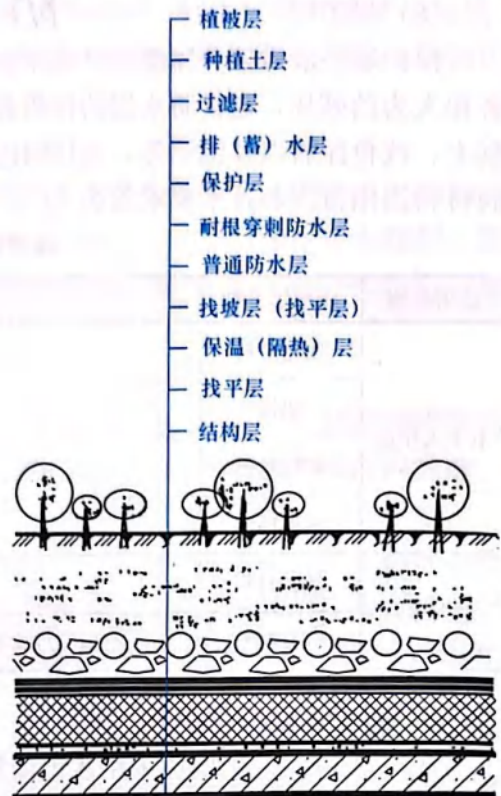 植被层
种植土层
过滤层
排（蓄）水层
保护层
耐根穿刺防水层
普通防水层
找坡层（找平层）
保温（隔热）层
找平层
结构层